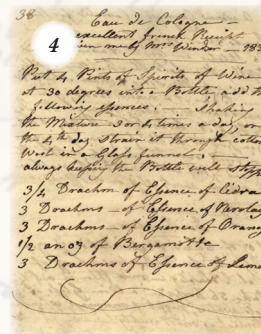 38
Eau de Cologne —
excellent french Receipt
given me by Mrs — 183
4
Put 4 Pints of Spirits of Wine
at 30 degrees into a Bottle add th
following essences. Shaking
the Mixture 3 or 4 times a day, on
the 4th day strain it through cotton
Wool in a Glass funnel. —
always keeping the Bottle well stopp
3/4 Drachm of Essence of Cidra
3 Drachms — of Essence of Nerola
3 Drachms — of Essence of Orang
1/2 an oz of Bergamotte
3 Drachms of Essence of Lemo